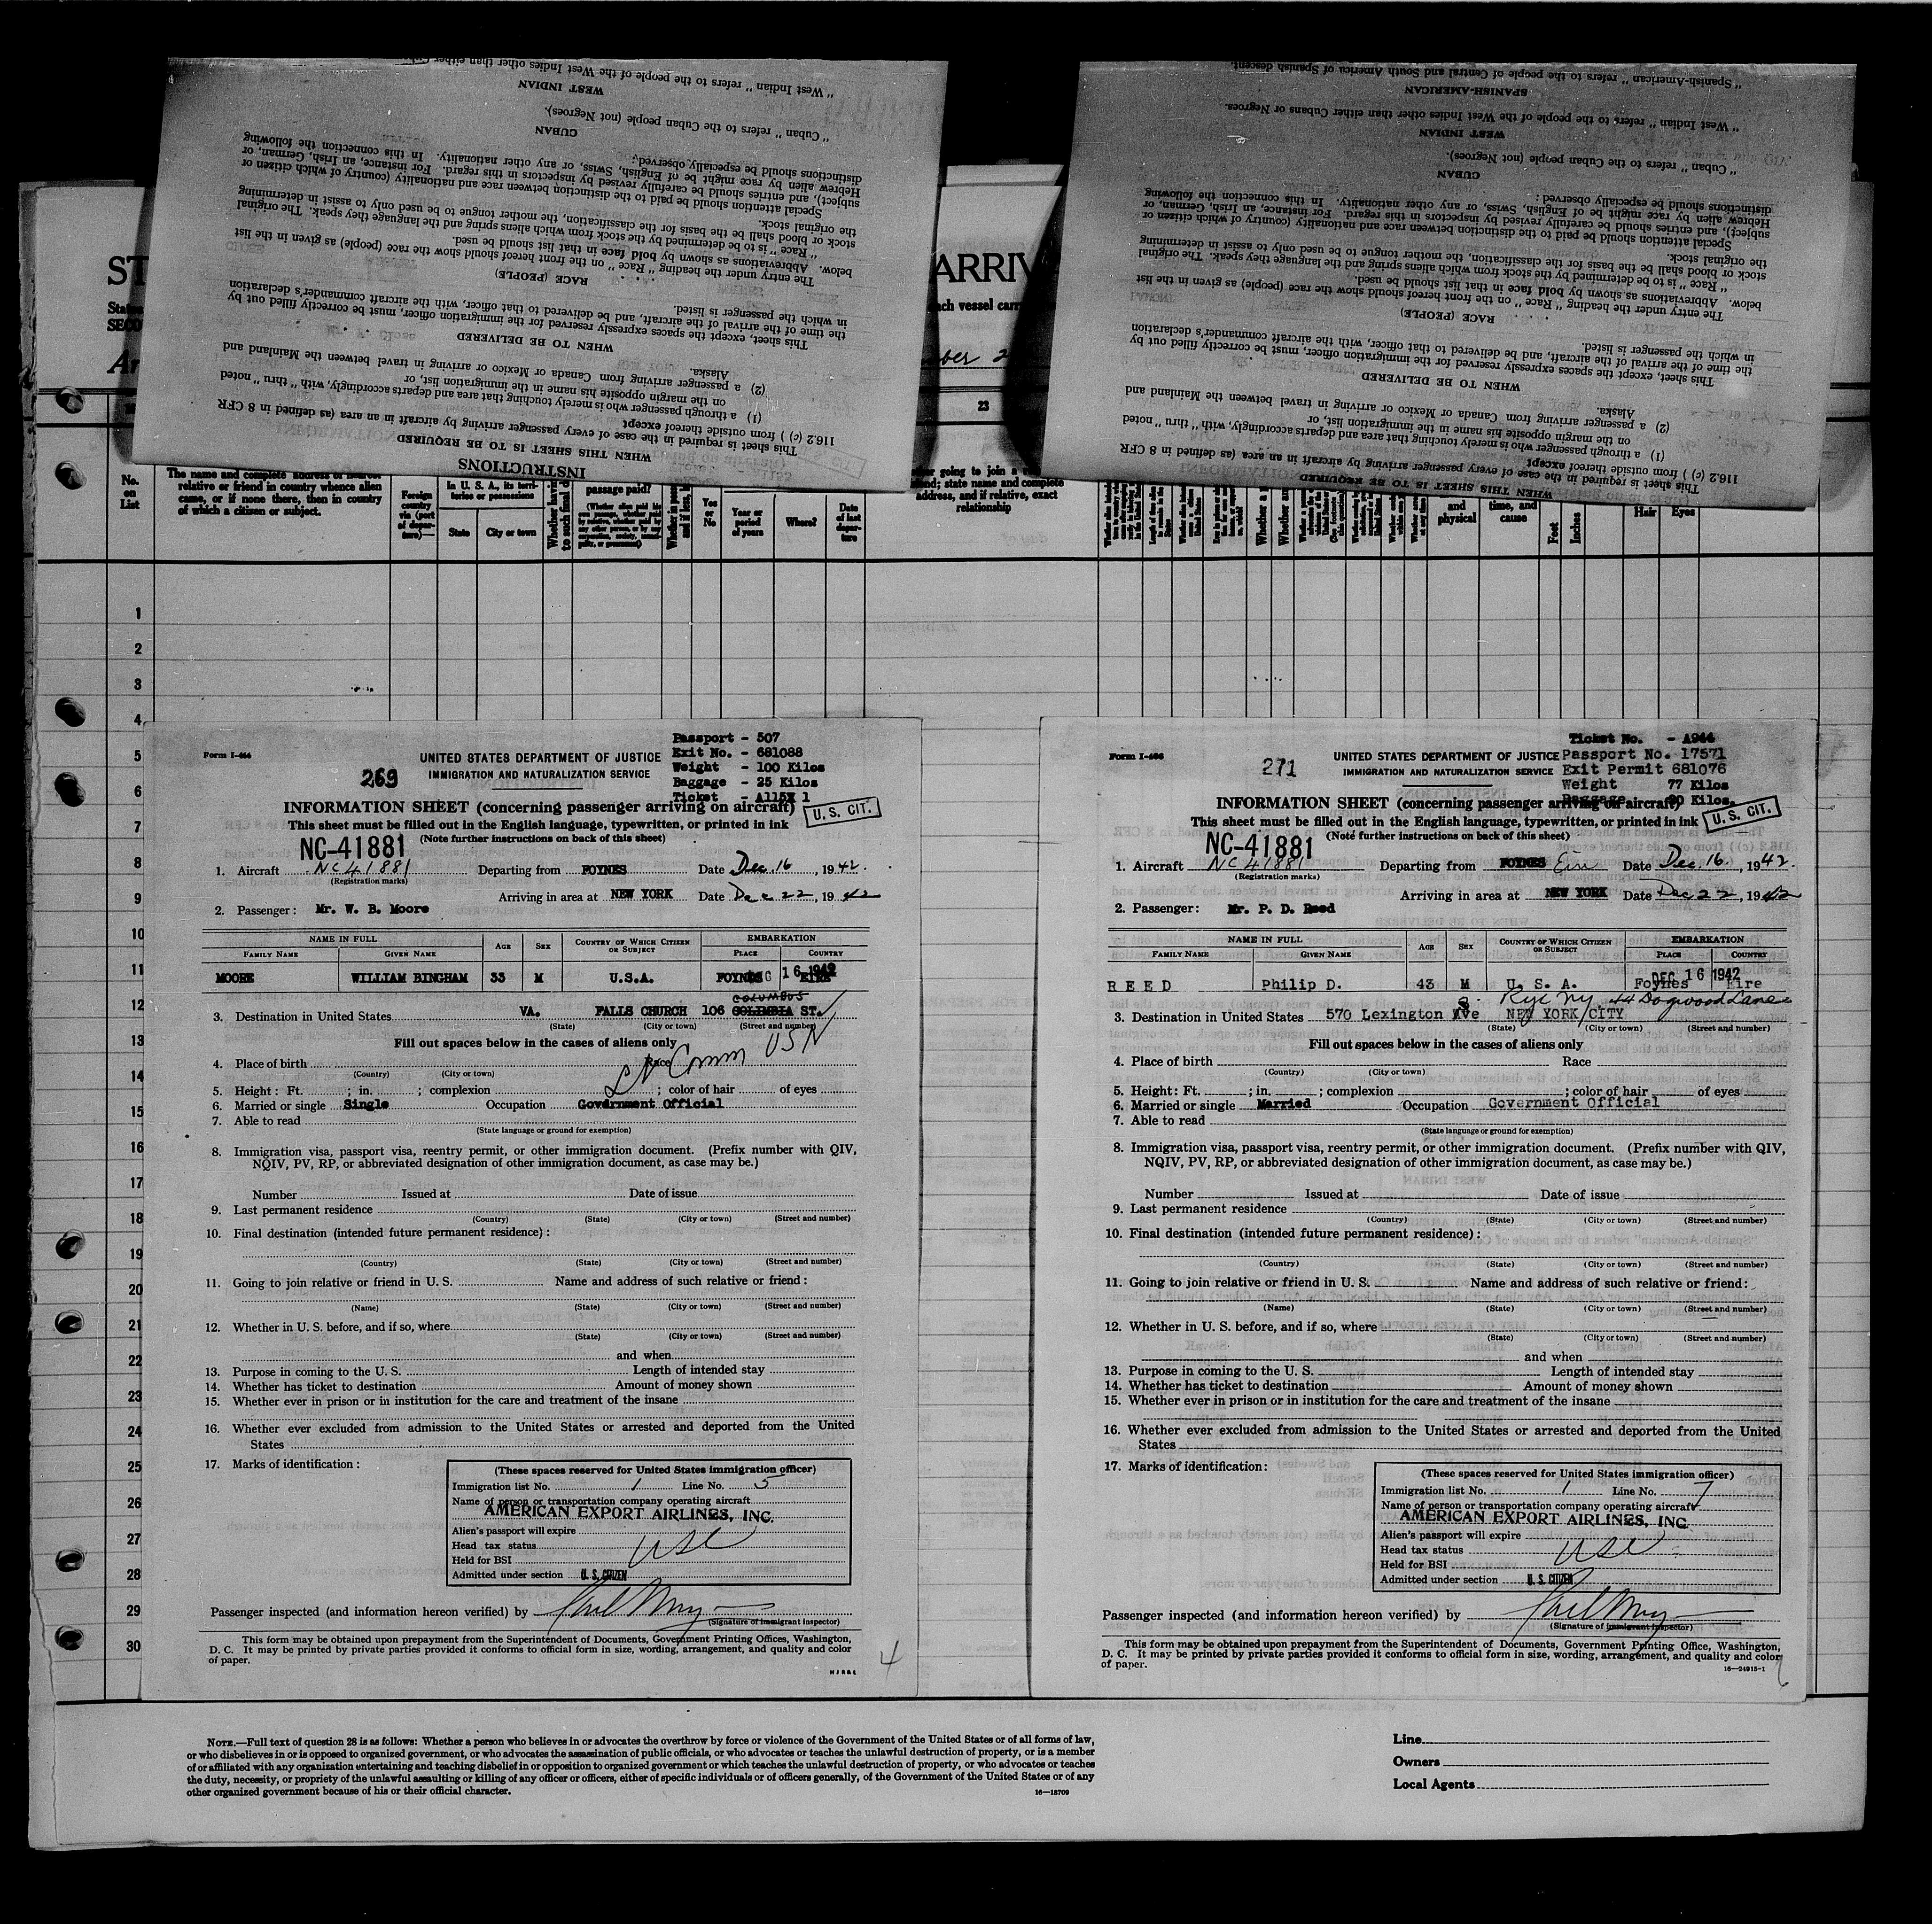 " West Indian " refers to the people of the West Indies other than either
WEST INDIAN
" Cuban " refers to the Cuban people (not Negroes).
CUBAN
distinctions should be especially observed:
Hebrew alien by race might be of English, Swiss, or any other nationality. In this connection the following
subject), and entries should be carefully revised by inspectors in this regard. For instance, an Irish, German, or
Special attention should be paid to the distinction between race and nationality (country of which citizen or
the original stock.
stock or blood shall be the basis for the classification, the mother tongue to be used only to assist in determining
" Race " is to be determined by the stock from which aliens spring and the language they speak. The original
below. Abbreviations as shown by bold face in that list should be used.
The entry under the heading " Race " on the front hereof should show the race (people) as given in the list
RACE (PEOPLE)
in which the passenger is listed.
the time of the arrival of the aircraft, and be delivered to that officer, with the aircraft commander's declaration
This sheet, except the spaces expressly reserved for the immigration officer, must be correctly filled out by
WHEN TO BE DELIVERED
Alaska.
(2) a passenger arriving from Canada or Mexico or arriving in travel between the Mainland and
on the margin opposite his name in the immigration list, or
(1) a through passenger who is merely touching that area and departs accordingly, with " thru " noted
116.2 (c) ) from outside thereof except
This sheet is required in the case of every passenger arriving by aircraft in an area (as defined in 8 CFR
WHEN THIS SHEET IS TO BE REQUIRED
INSTRUCTIONS
" Spanish-American " refers to the people of Central and South America of Spanish descent.
SPANISH-AMERICAN
" West Indian " refers to the people of the West Indies other than either Cubans or Negroes.
WEST INDIAN
" Cuban " refers to the Cuban people (not Negroes).
CUBAN
distinctions should be especially observed:
Hebrew alien by race might be of English, Swiss, or any other nationality. In this connection the following
subject), and entries should be carefully revised by inspectors in this regard. For instance, an Irish, German, or
Special attention should be paid to the distinction between race and nationality (country of which citizen or
the original stock.
stock or blood shall be the basis for the classification, the mother tongue to be used only to assist in determining
" Race " is to be determined by the stock from which aliens spring and the language they speak. The original
below. Abbreviations as shown by bold face in that list should be used.
The entry under the heading " Race " on the front hereof should show the race (people) as given in the list
RACE (PEOPLE)
in which the passenger is listed.
the time of the arrival of the aircraft, and be delivered to that officer, with the aircraft commander's declaration
This sheet, except the spaces expressly reserved for the immigration officer, must be correctly filled out by
WHEN TO BE DELIVERED
Alaska.
(2) a passenger arriving from Canada or Mexico or arriving in travel between the Mainland and
on the margin opposite his name in the immigration list, or
(1) a through passenger who is merely touching that area and departs accordingly, with " thru " noted
116.2 (c) ) from outside thereof except
This sheet is required in the case of every passenger arriving by aircraft in an area (as defined in 8 CFR
WHEN THIS SHEET IS TO BE REQUIRED
ST ARRIV
ach vessel carr
SECO
mber 2
23
No. on List
The name and complete address of nearest
relative or friend in country whence alien
came, or if none there, then in country
of which a citizen or subject.
Foreign country via (port of departure)—
In U. S. A., its territories or possessions
State City or town
passage paid?
Yes or No
Year or period of years
Where?
Date of last departure
going to join a
end; state name and complete
address, and if relative, exact
relationship
and physical
time, and cause
Feet Inches
Hair Eyes
1
2
3
4
5
6
7
8
9
10
11
12
13
14
15
16
17
18
19
20
21
22
23
24
25
26
27
28
29
30
Form I-466
269
UNITED STATES DEPARTMENT OF JUSTICE
IMMIGRATION AND NATURALIZATION SERVICE
Passport - 507
Exit No. - 681088
Weight - 100 Kilos
Baggage - 25 Kilos
Ticket - A115X 1
INFORMATION SHEET (concerning passenger arriving on aircraft)
U. S. CIT.
This sheet must be filled out in the English language, typewritten, or printed in ink
NC-41881 (Note further instructions on back of this sheet)
1. Aircraft NC 41881 Departing from FOYNES Date Dec. 16, 1942.
(Registration marks)
Arriving in area at NEW YORK Date Dec 22, 1942
2. Passenger: Mr. W. B. Moore
NAME IN FULL AGE SEX COUNTRY OF WHICH CITIZEN OR SUBJECT EMBARKATION
FAMILY NAME GIVEN NAME PLACE COUNTRY
MOORE WILLIAM BINGHAM 33 M U.S.A. FOYNES DEC 16 1942 EIRE
COLUMBUS
3. Destination in United States VA. FALLS CHURCH 106 COLUMBIA ST.
(State) (City or town) (Street and number)
Fill out spaces below in the cases of aliens only
Lt Comm USN
4. Place of birth Race
(Country) (City or town)
5. Height: Ft. ; in. ; complexion ; color of hair of eyes
6. Married or single Single Occupation Government Official
7. Able to read
(State language or ground for exemption)
8. Immigration visa, passport visa, reentry permit, or other immigration document. (Prefix number with QIV,
NQIV, PV, RP, or abbreviated designation of other immigration document, as case may be.)
Number Issued at Date of issue
9. Last permanent residence
(Country) (State) (City or town) (Street and number)
10. Final destination (intended future permanent residence):
(Country) (State) (City or town) (Street and number)
11. Going to join relative or friend in U. S. Name and address of such relative or friend:
(Name) (State) (City or town) (Street and number)
12. Whether in U. S. before, and if so, where
(State) (City or town) (Street and number)
and when
13. Purpose in coming to the U. S. Length of intended stay
14. Whether has ticket to destination Amount of money shown
15. Whether ever in prison or in institution for the care and treatment of the insane
16. Whether ever excluded from admission to the United States or arrested and deported from the United
States
17. Marks of identification:
(These spaces reserved for United States immigration officer)
Immigration list No. 1 Line No. 5
Name of person or transportation company operating aircraft
AMERICAN EXPORT AIRLINES, INC.
Alien's passport will expire
Head tax status USC
Held for BSI
Admitted under section U. S. CITIZEN
Passenger inspected (and information hereon verified) by
(Signature of immigrant inspector)
This form may be obtained upon prepayment from the Superintendent of Documents, Government Printing Offices, Washington,
D. C. It may be printed by private parties provided it conforms to official form in size, wording, arrangement, and quality and color
of paper.
4
Form I-466
271
UNITED STATES DEPARTMENT OF JUSTICE
IMMIGRATION AND NATURALIZATION SERVICE
Ticket No. - A944
Passport No. 17571
Exit Permit 681076
Weight 77 Kilos
Baggage 20 Kilos.
INFORMATION SHEET (concerning passenger arriving on aircraft)
U. S. CIT.
This sheet must be filled out in the English language, typewritten, or printed in ink
NC-41881 (Note further instructions on back of this sheet)
1. Aircraft NC 41881 Departing from FOYNES Eire Date Dec. 16, 1942.
(Registration marks)
Arriving in area at NEW YORK Date Dec 22, 1942
2. Passenger: Mr. P. D. Reed
NAME IN FULL AGE SEX COUNTRY OF WHICH CITIZEN OR SUBJECT EMBARKATION
FAMILY NAME GIVEN NAME PLACE COUNTRY
REED Philip D. 43 M U. S. A. DEC 16 1942 Foynes Eire
Rye Ny. 44 Dogwood Lane
3. Destination in United States 570 Lexington Ave NEW YORK CITY
(State) (City or town) (Street and number)
Fill out spaces below in the cases of aliens only
4. Place of birth Race
(Country) (City or town)
5. Height: Ft. ; in. ; complexion ; color of hair of eyes
6. Married or single Married Occupation Government Official
7. Able to read
(State language or ground for exemption)
8. Immigration visa, passport visa, reentry permit, or other immigration document. (Prefix number with QIV,
NQIV, PV, RP, or abbreviated designation of other immigration document, as case may be.)
Number Issued at Date of issue
9. Last permanent residence
(Country) (State) (City or town) (Street and number)
10. Final destination (intended future permanent residence):
(Country) (State) (City or town) (Street and number)
11. Going to join relative or friend in U. S. Name and address of such relative or friend:
(Name) (State) (City or town) (Street and number)
12. Whether in U. S. before, and if so, where
(State) (City or town) (Street and number)
and when
13. Purpose in coming to the U. S. Length of intended stay
14. Whether has ticket to destination Amount of money shown
15. Whether ever in prison or in institution for the care and treatment of the insane
16. Whether ever excluded from admission to the United States or arrested and deported from the United
States
17. Marks of identification:
(These spaces reserved for United States immigration officer)
Immigration list No. 1 Line No. 7
Name of person or transportation company operating aircraft
AMERICAN EXPORT AIRLINES, INC
Alien's passport will expire
Head tax status USC
Held for BSI
Admitted under section U. S. CITIZEN
Passenger inspected (and information hereon verified) by
(Signature of immigrant inspector)
This form may be obtained upon prepayment from the Superintendent of Documents, Government Printing Office, Washington,
D. C. It may be printed by private parties provided it conforms to official form in size, wording, arrangement, and quality and color
of paper.
16—24915-1
NOTE.—Full text of question 28 is as follows: Whether a person who believes in or advocates the overthrow by force or violence of the Government of the United States or of all forms of law,
or who disbelieves in or is opposed to organized government, or who advocates the assassination of public officials, or who advocates or teaches the unlawful destruction of property, or is a member
of or affiliated with any organization entertaining and teaching disbelief in or opposition to organized government or which teaches the unlawful destruction of property, or who advocates or teaches
the duty, necessity, or propriety of the unlawful assaulting or killing of any officer or officers, either of specific individuals or of officers generally, of the Government of the United States or of any
other organized government because of his or their official character.
16—18709
Line
Owners
Local Agents